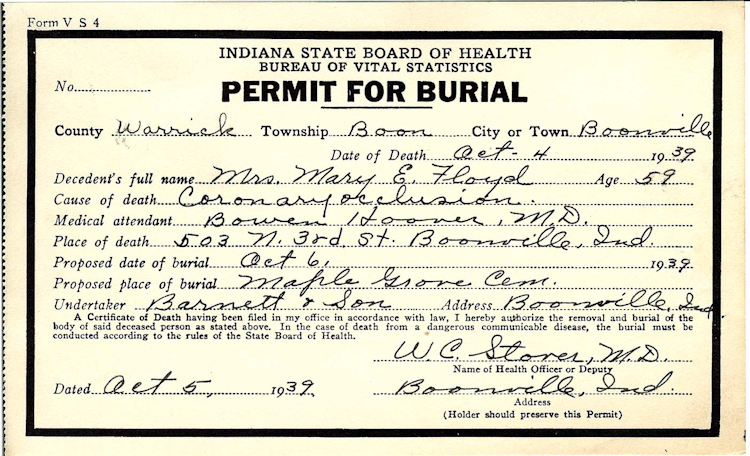 Form V S 4
INDIANA STATE BOARD OF HEALTH
BUREAU OF VITAL STATISTICS
No.
PERMIT FOR BURIAL
County Warrick Township Boon City or Town Boonville
Date of Death Oct - 4 1939
Decedent's full name Mrs. Mary E. Floyd Age 59
Cause of death Coronary occlusion.
Medical attendant Bowen Hoover, M.D.
Place of death 503 N. 3rd St. Boonville, Ind.
Proposed date of burial Oct 6, 1939
Proposed place of burial Maple Grove Cem.
Undertaker Barnett & Son Address Boonville, Ind
A Certificate of Death having been filed in my office in accordance with law, I hereby authorize the removal and burial of the
body of said deceased person as stated above. In the case of death from a dangerous communicable disease, the burial must be
conducted according to the rules of the State Board of Health.
W.C. Stover, M.D.
Name of Health Officer or Deputy
Dated Oct 5, 1939 Boonville, Ind.
Address
(Holder should preserve this Permit)